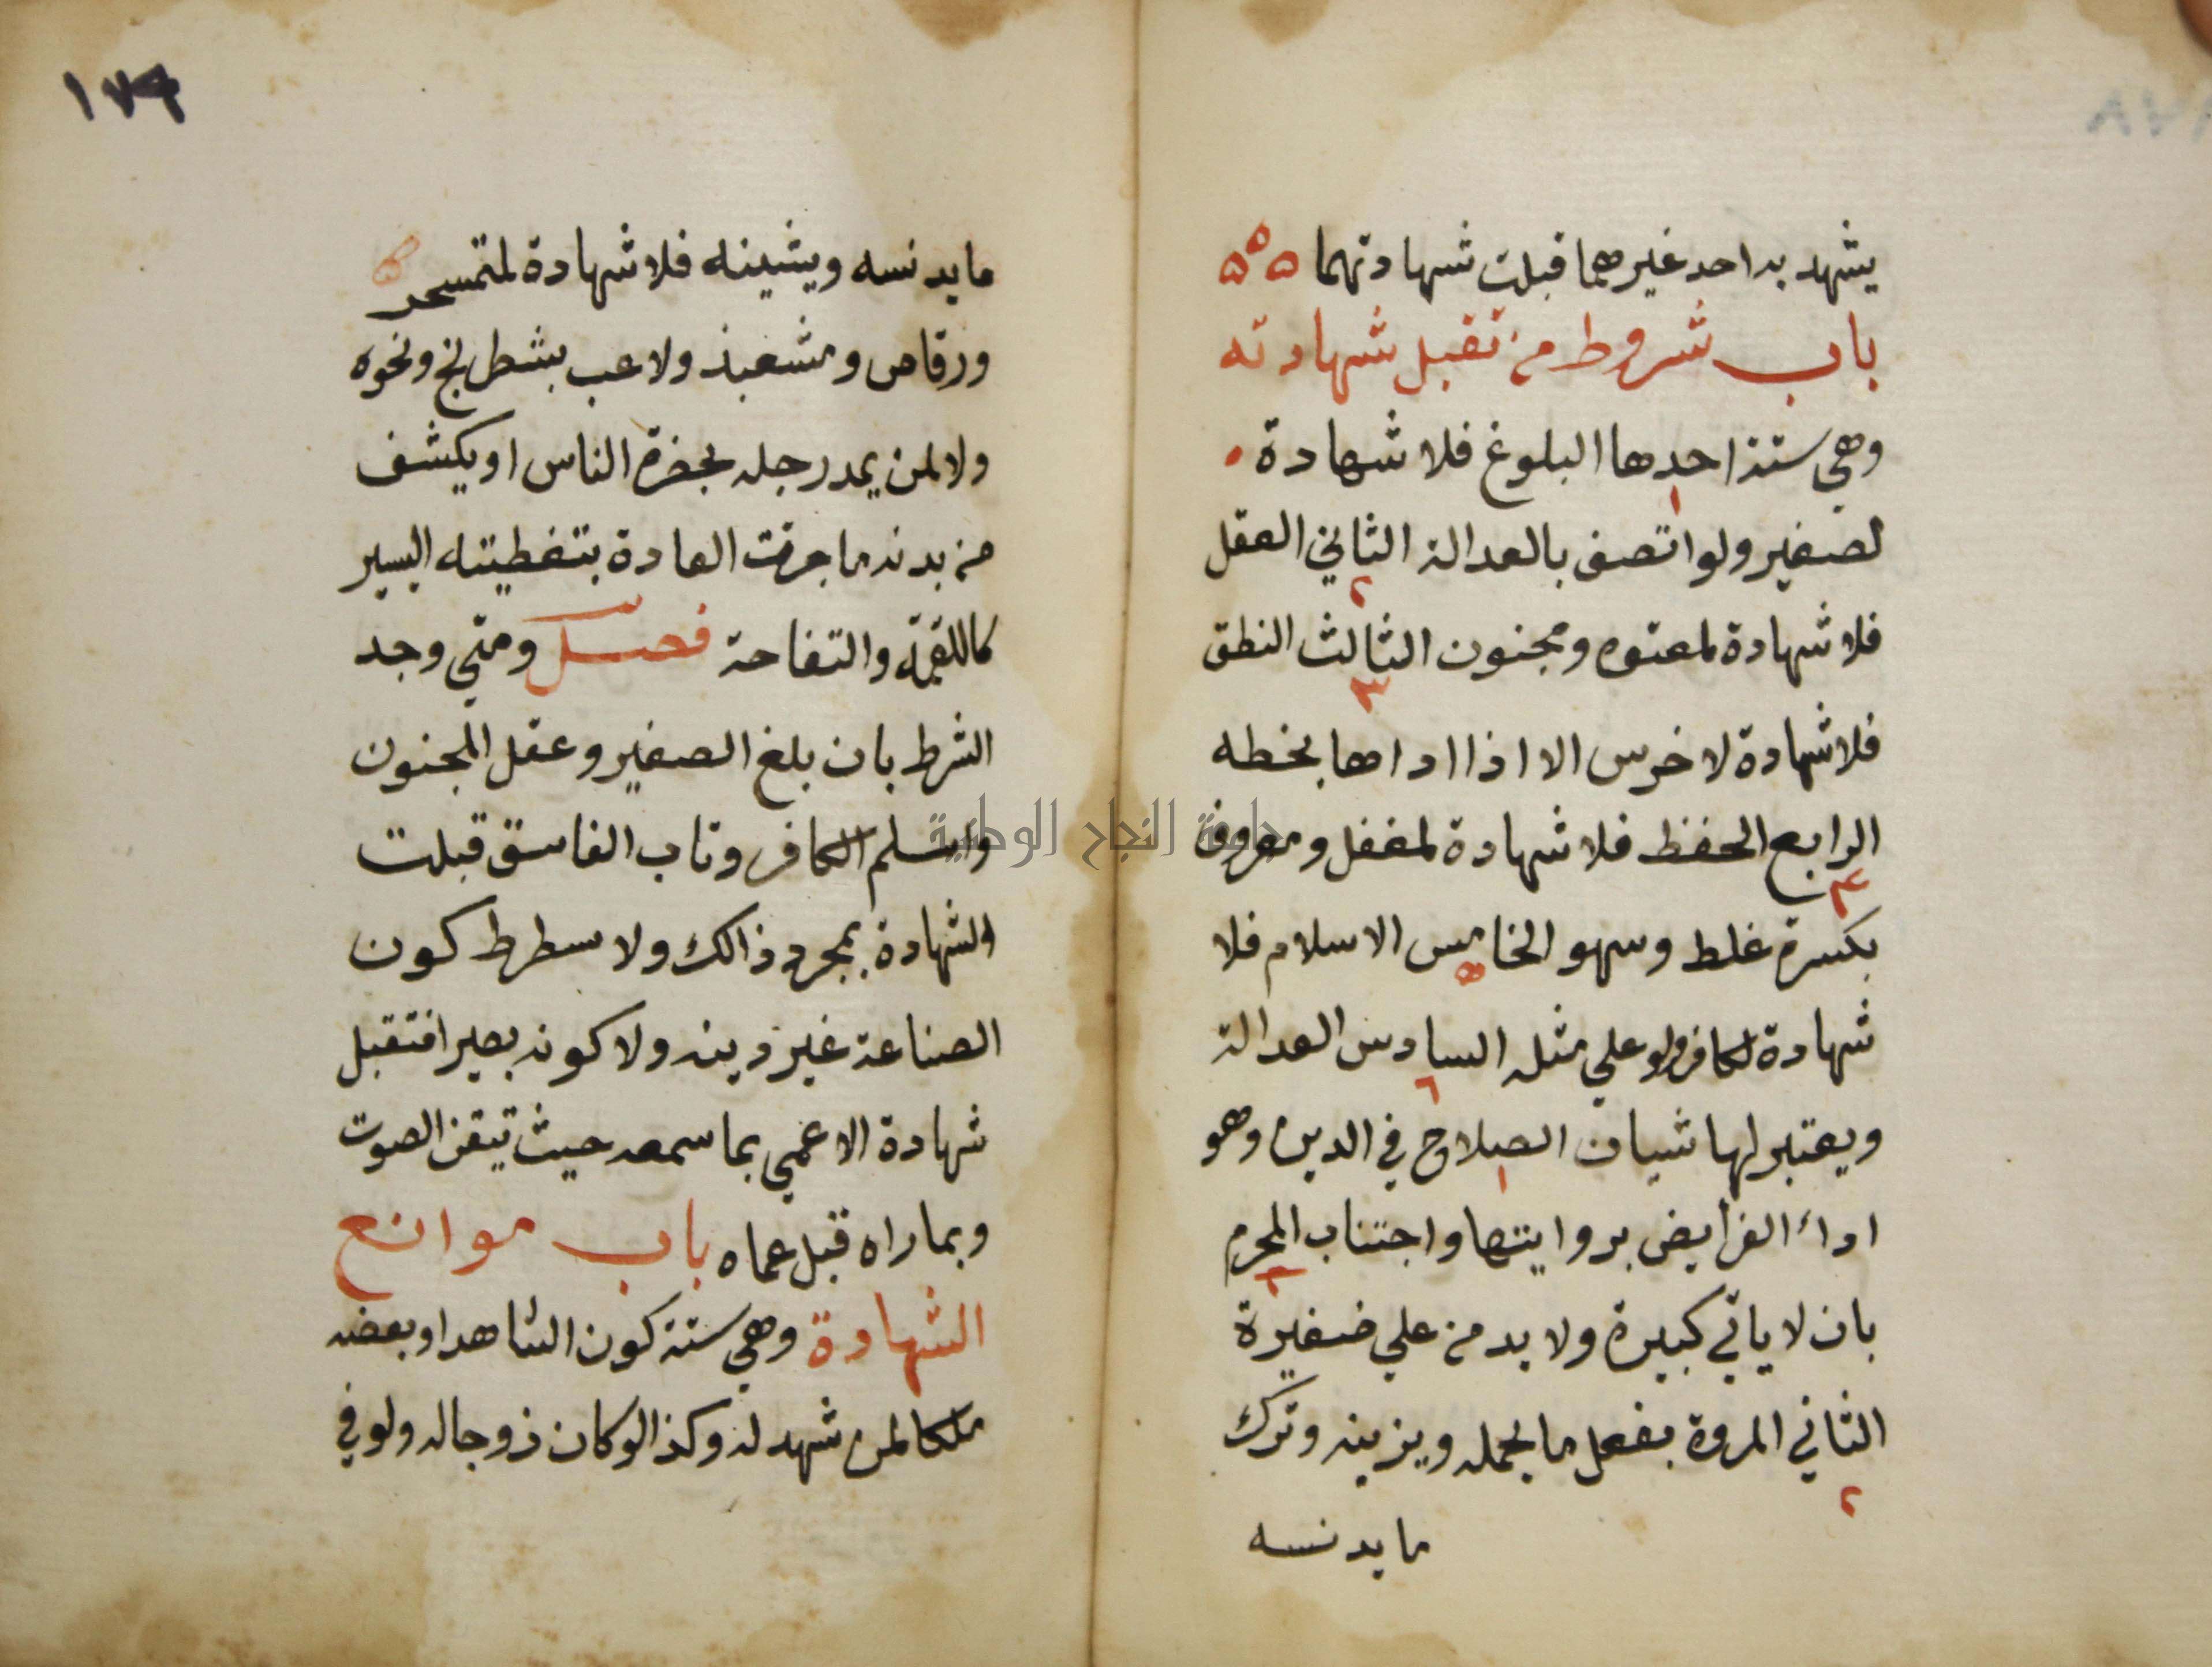 يشهد به احد غيرهما قبلت شهادتهما ٥٥٥
باب شروط من تقبل شهادته
وهي ستة احدها البلوغ فلا شهادة
١
لصغير ولو اتصف بالعدالة الثاني العقل
٢
فلا شهادة لمعتوه ومجنون الثالث النطق
٣
فلا شهادة لاخرس الا اذا اداها بخطه
الرابع الحفظ فلا شهادة لمغفل ومعروف
٤
بكسرة غلط وسهو الخامس الاسلام فلا
٥
شهادة لكافر ولو علي مثله السادس العدالة
٦
ويعتبر لها شيان الصلاح في الدين وهو
١
اداء الفرايض برواتبها واجتناب المحرم
٢
بان لا ياتي كبيرة ولا يدمن علي صغيرة
الثاني المروة بفعل ما يجمله ويزينه وترك
٢
ما يدنسه
١٧٩
ما يدنسه ويشينه فلا شهادة لمتمسخر
ورقاص ومشعبذ ولاعب بشطرنج ونحوه
ولا لمن يمد رجله بحضرة الناس او يكشف
من بدنه ما جرت العادة بتغطيته اليسير
كاللقمة والتفاحة فصل ومتي وجد
الشرط بان بلغ الصغير وعقل المجنون
واسلم الكافر وتاب الفاسق قبلت
الشهادة بمجرد ذالك ولا سطرط كون
الصناعة غير دينه ولا كونه بصيرا فتقبل
شهادة الاعمي بما سمعه حيث تيقن الصوت
وبما راه قبل عماه باب موانع
الشهادة وهي ستة كون الشاهد او بعضه
ملكا لمن شهد له وكذا لو كان زوجا له ولو في
جامعة النجاح الوطنية